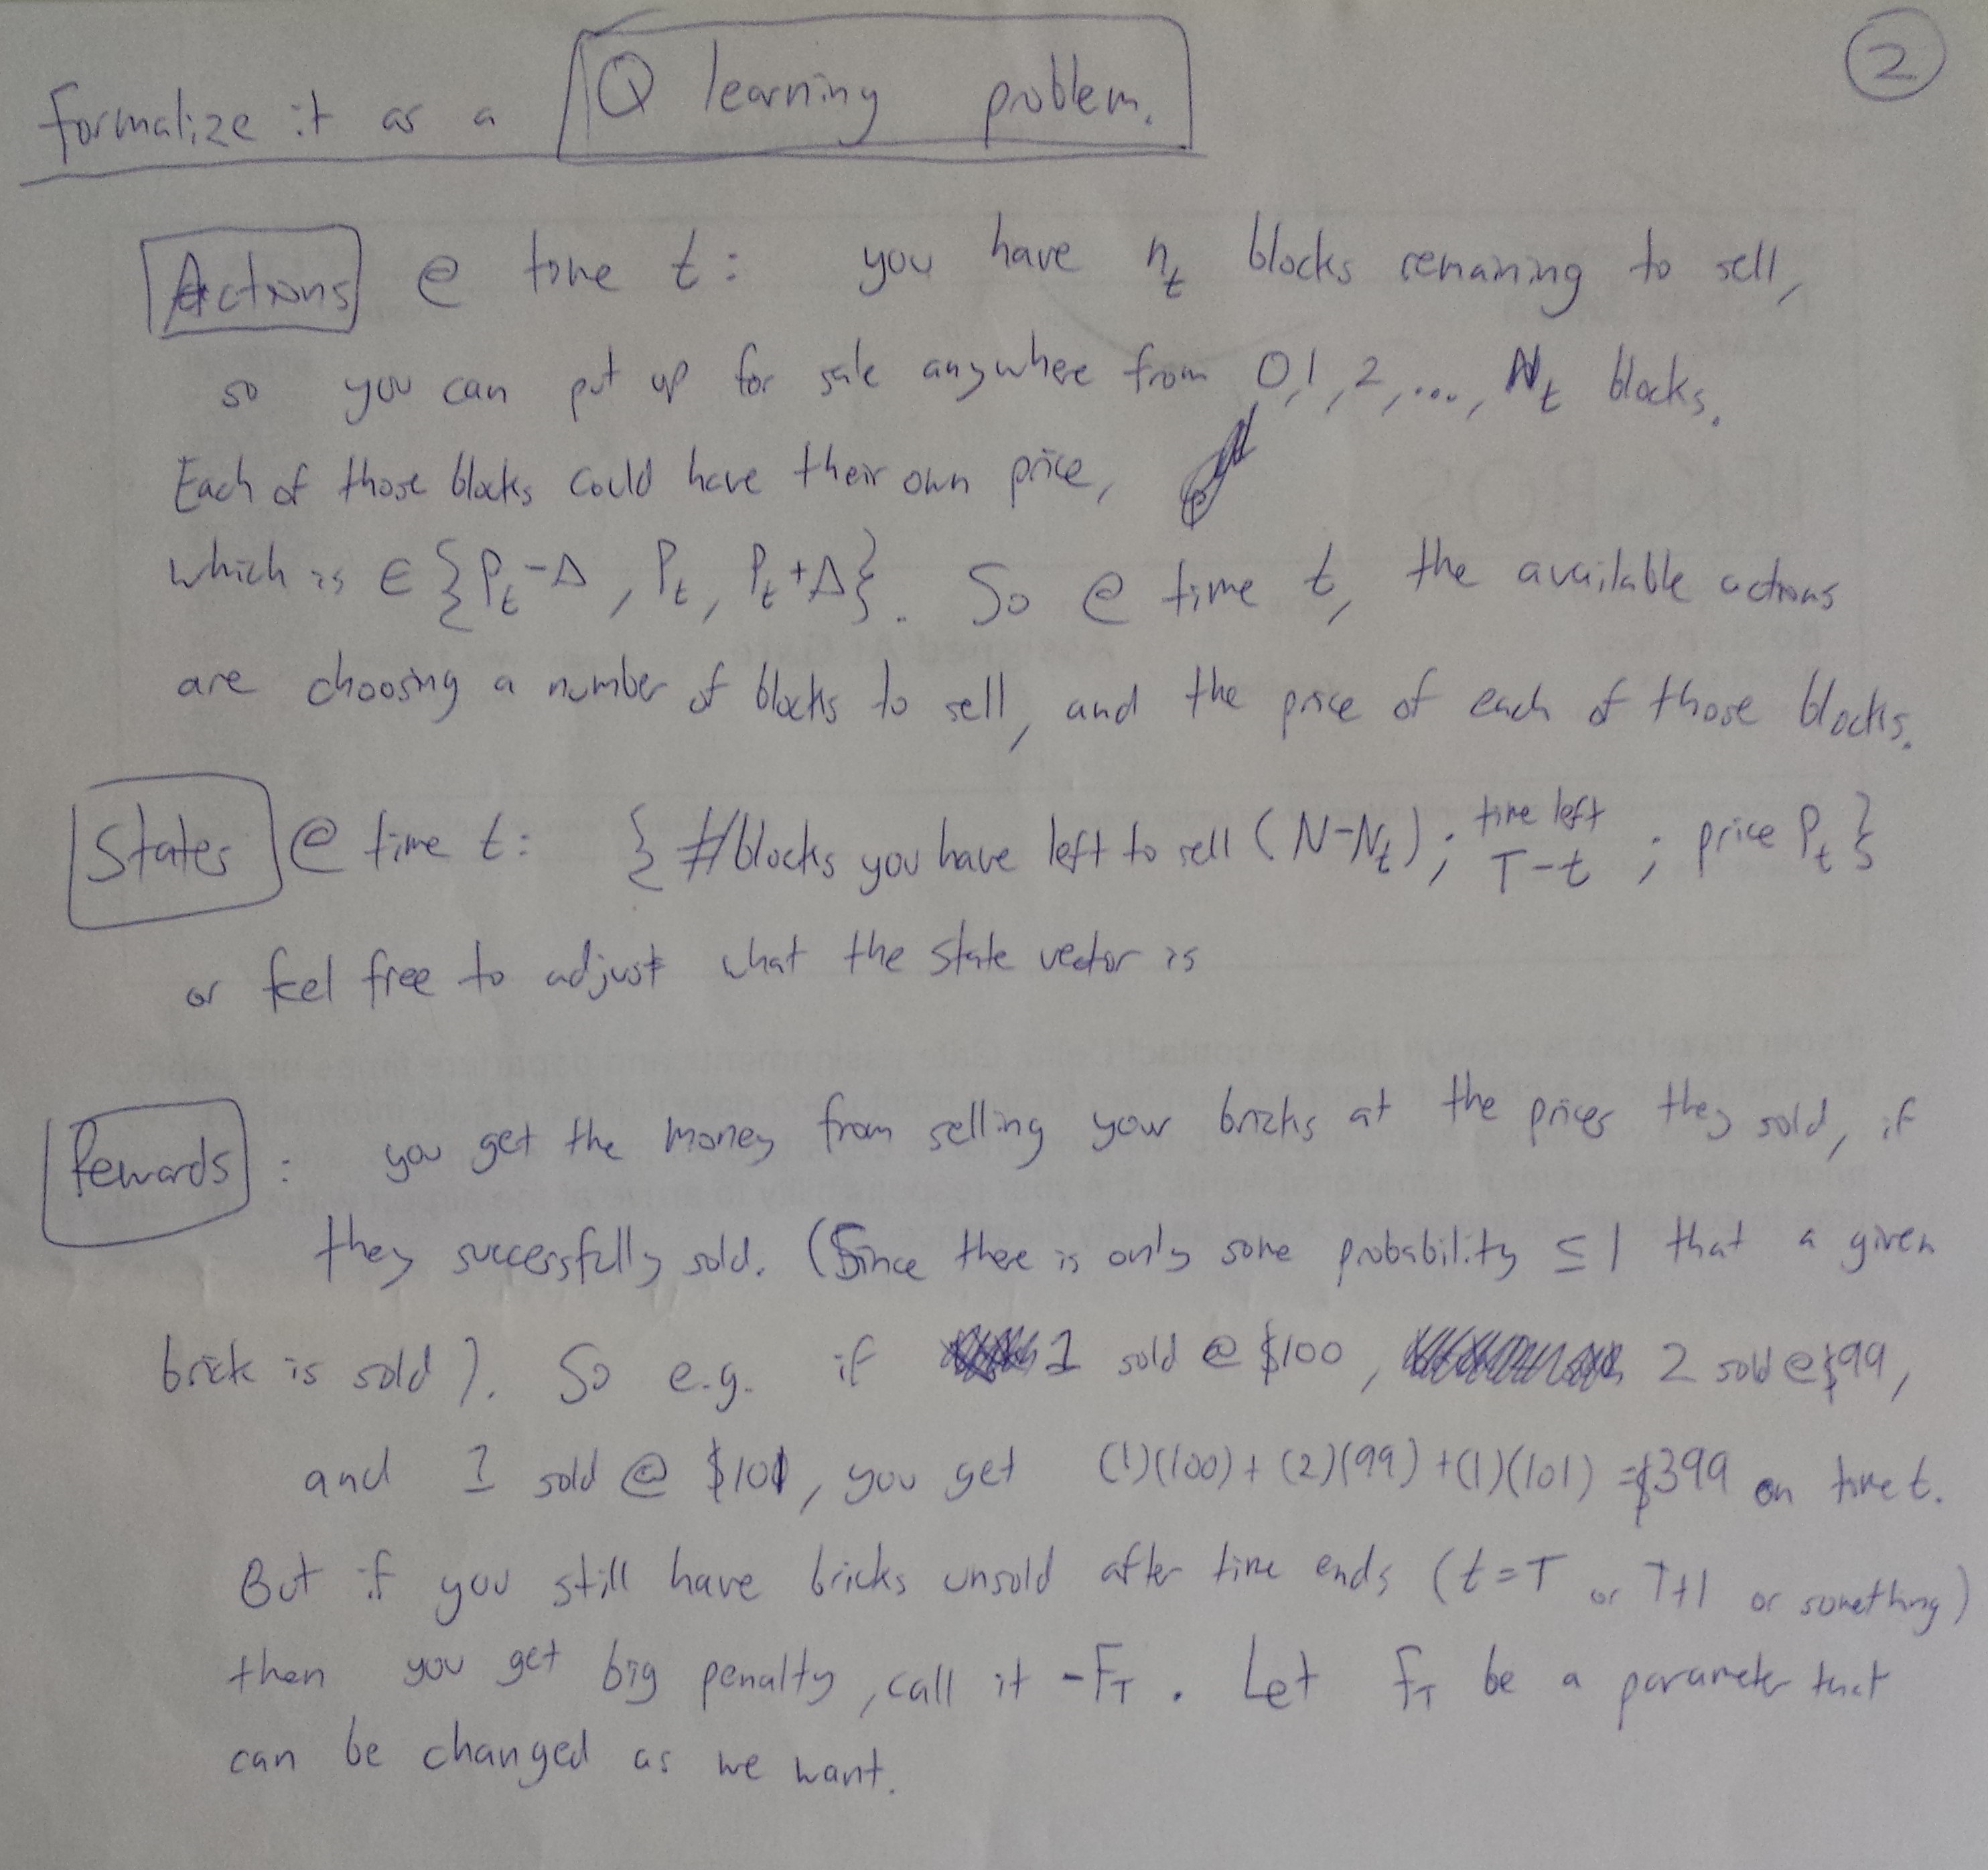 2
Formalize it as a Q learning problem.
Actions @ time t: you have n_t blocks remaining to sell,
so you can put up for sale anywhere from 0,1,2,..., N_t blocks.
Each of those blocks could have their own price,
which is ∈ {P_t-Δ, P_t, P_t+Δ}. So @ time t, the available actions
are choosing a number of blocks to sell, and the price of each of those blocks.
States @ time t: {#blocks you have left to sell (N-N_t); time left T-t; price P_t}
or feel free to adjust what the state vector is
Rewards: you get the money from selling your bricks at the prices they sold, if
they successfully sold. (Since there is only some probability ≤ 1 that a given
brick is sold). So e.g. if 1 sold @ $100, 2 sold @ $99,
and 1 sold @ $101, you get (1)(100) + (2)(99) + (1)(101) = $399 on time t.
But if you still have bricks unsold after time ends (t=T or T+1 or something)
then you get big penalty, call it -F_T. Let F_T be a parameter that
can be changed as we want.